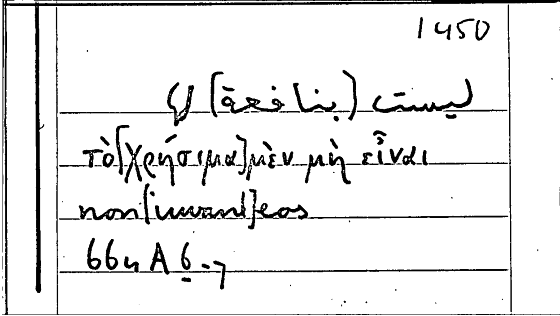 1450
ليست (بنافعة) لها
τὸ [χρήσιμα] μὲν μὴ εἶναι
non [iuvant] eos
66a A 6-7